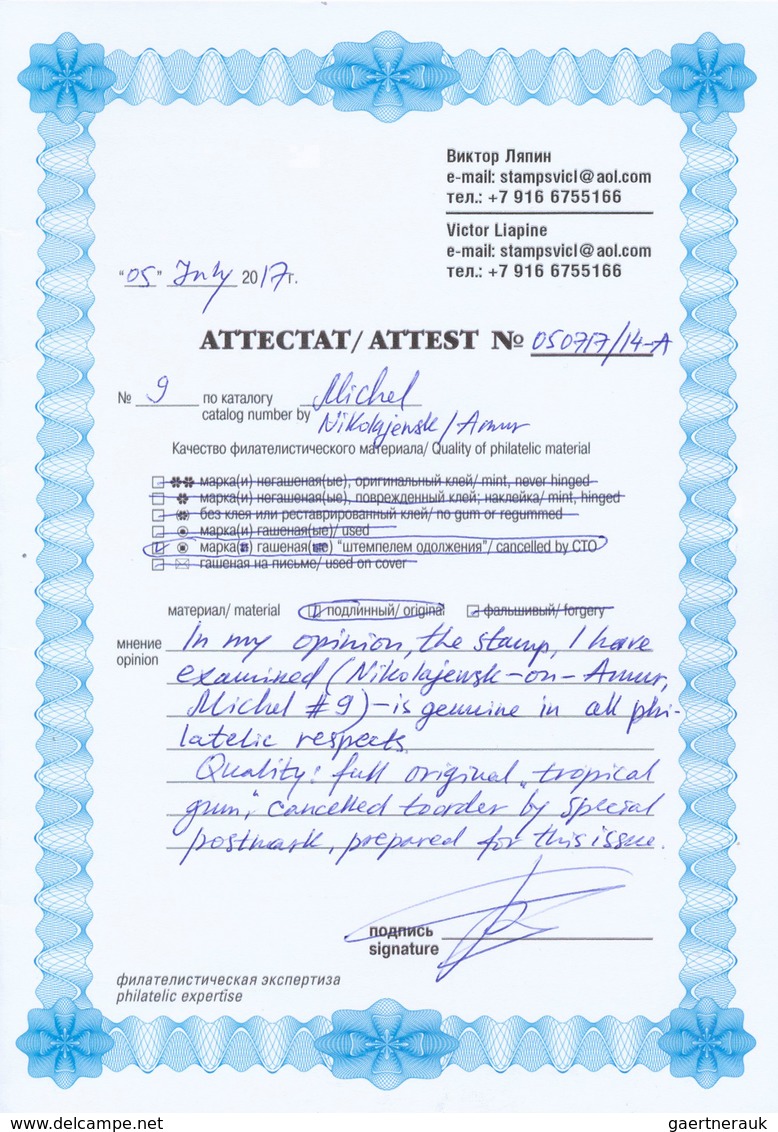 Виктор Ляпин
e-mail: stampsvicl@aol.com
тел.: +7 916 6755166
Victor Liapine
e-mail: stampsvicl@aol.com
тел.: +7 916 6755166
"05" July 2017г.
АТТЕСТАТ/ ATTEST № 050717/14-A
№ 9 по каталогу Michel
catalog number by Nikolajewsk/Amur
Качество филателистического материала/ Quality of philatelic material
марка(и) негашеная(ые), оригинальный клей/ mint, never hinged
марка(и) негашеная(ые), поврежденный клей; наклейка/ mint, hinged
без клея или реставрированный клей/ no gum or regummed
марка(и) гашеная(ые)/ used
марка(и) гашеная(ые) "штемпелем одолжения"/ cancelled by CTO
гашеная на письме/ used on cover
материал/ material подлинный/ original фальшивый/ forgery
мнение
opinion
In my opinion, the stamp, I have
examined (Nikolajewsk-on-Amur,
Michel #9) - is genuine in all phi-
latelic respects.
Quality: full original "tropical
gum", cancelled to order by special
postmark, prepared for this issue.
подпись
signature
филателистическая экспертиза
philatelic expertise
www.delcampe.net
gaertnerauk